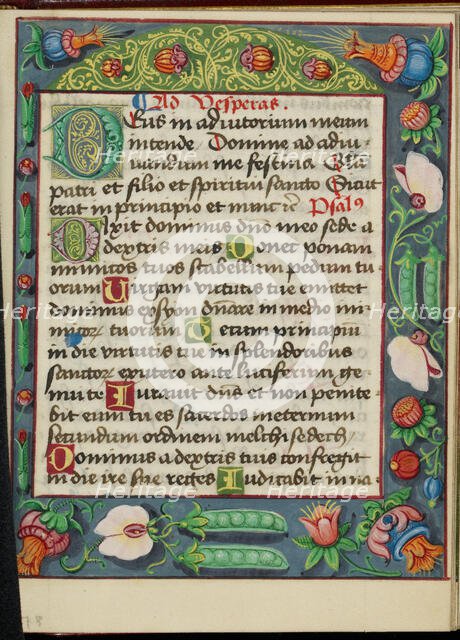 Ad Vesperas.
Deus in adiutorium meum
intende Domine ad adiu
uandum me festina Glia
patri et filio et spiritui sancto Sicut
erat in principio et nunc
Psal9
Dixit dominus dno meo sede a
dextris meis Donec ponam
inimicos tuos scabellum pedum tu
orum Uirgam uirtutis tue emittet
dominus ex syon dnare in medio ini
micor tuorum Tecum principiu
in die uirtutis tue in splendoribus
sanctor ex utero ante luciferum ge
nui te Iurauit dns et non penite
bit eum tu es sacerdos in eternum
secundum ordinem melchisedech
Dominus a dextris tuis confregit
in die ire sue reges Iudicabit in na
Heritage
Heritage
Heritage
Heritage
Heritage
Heritage
Heritage